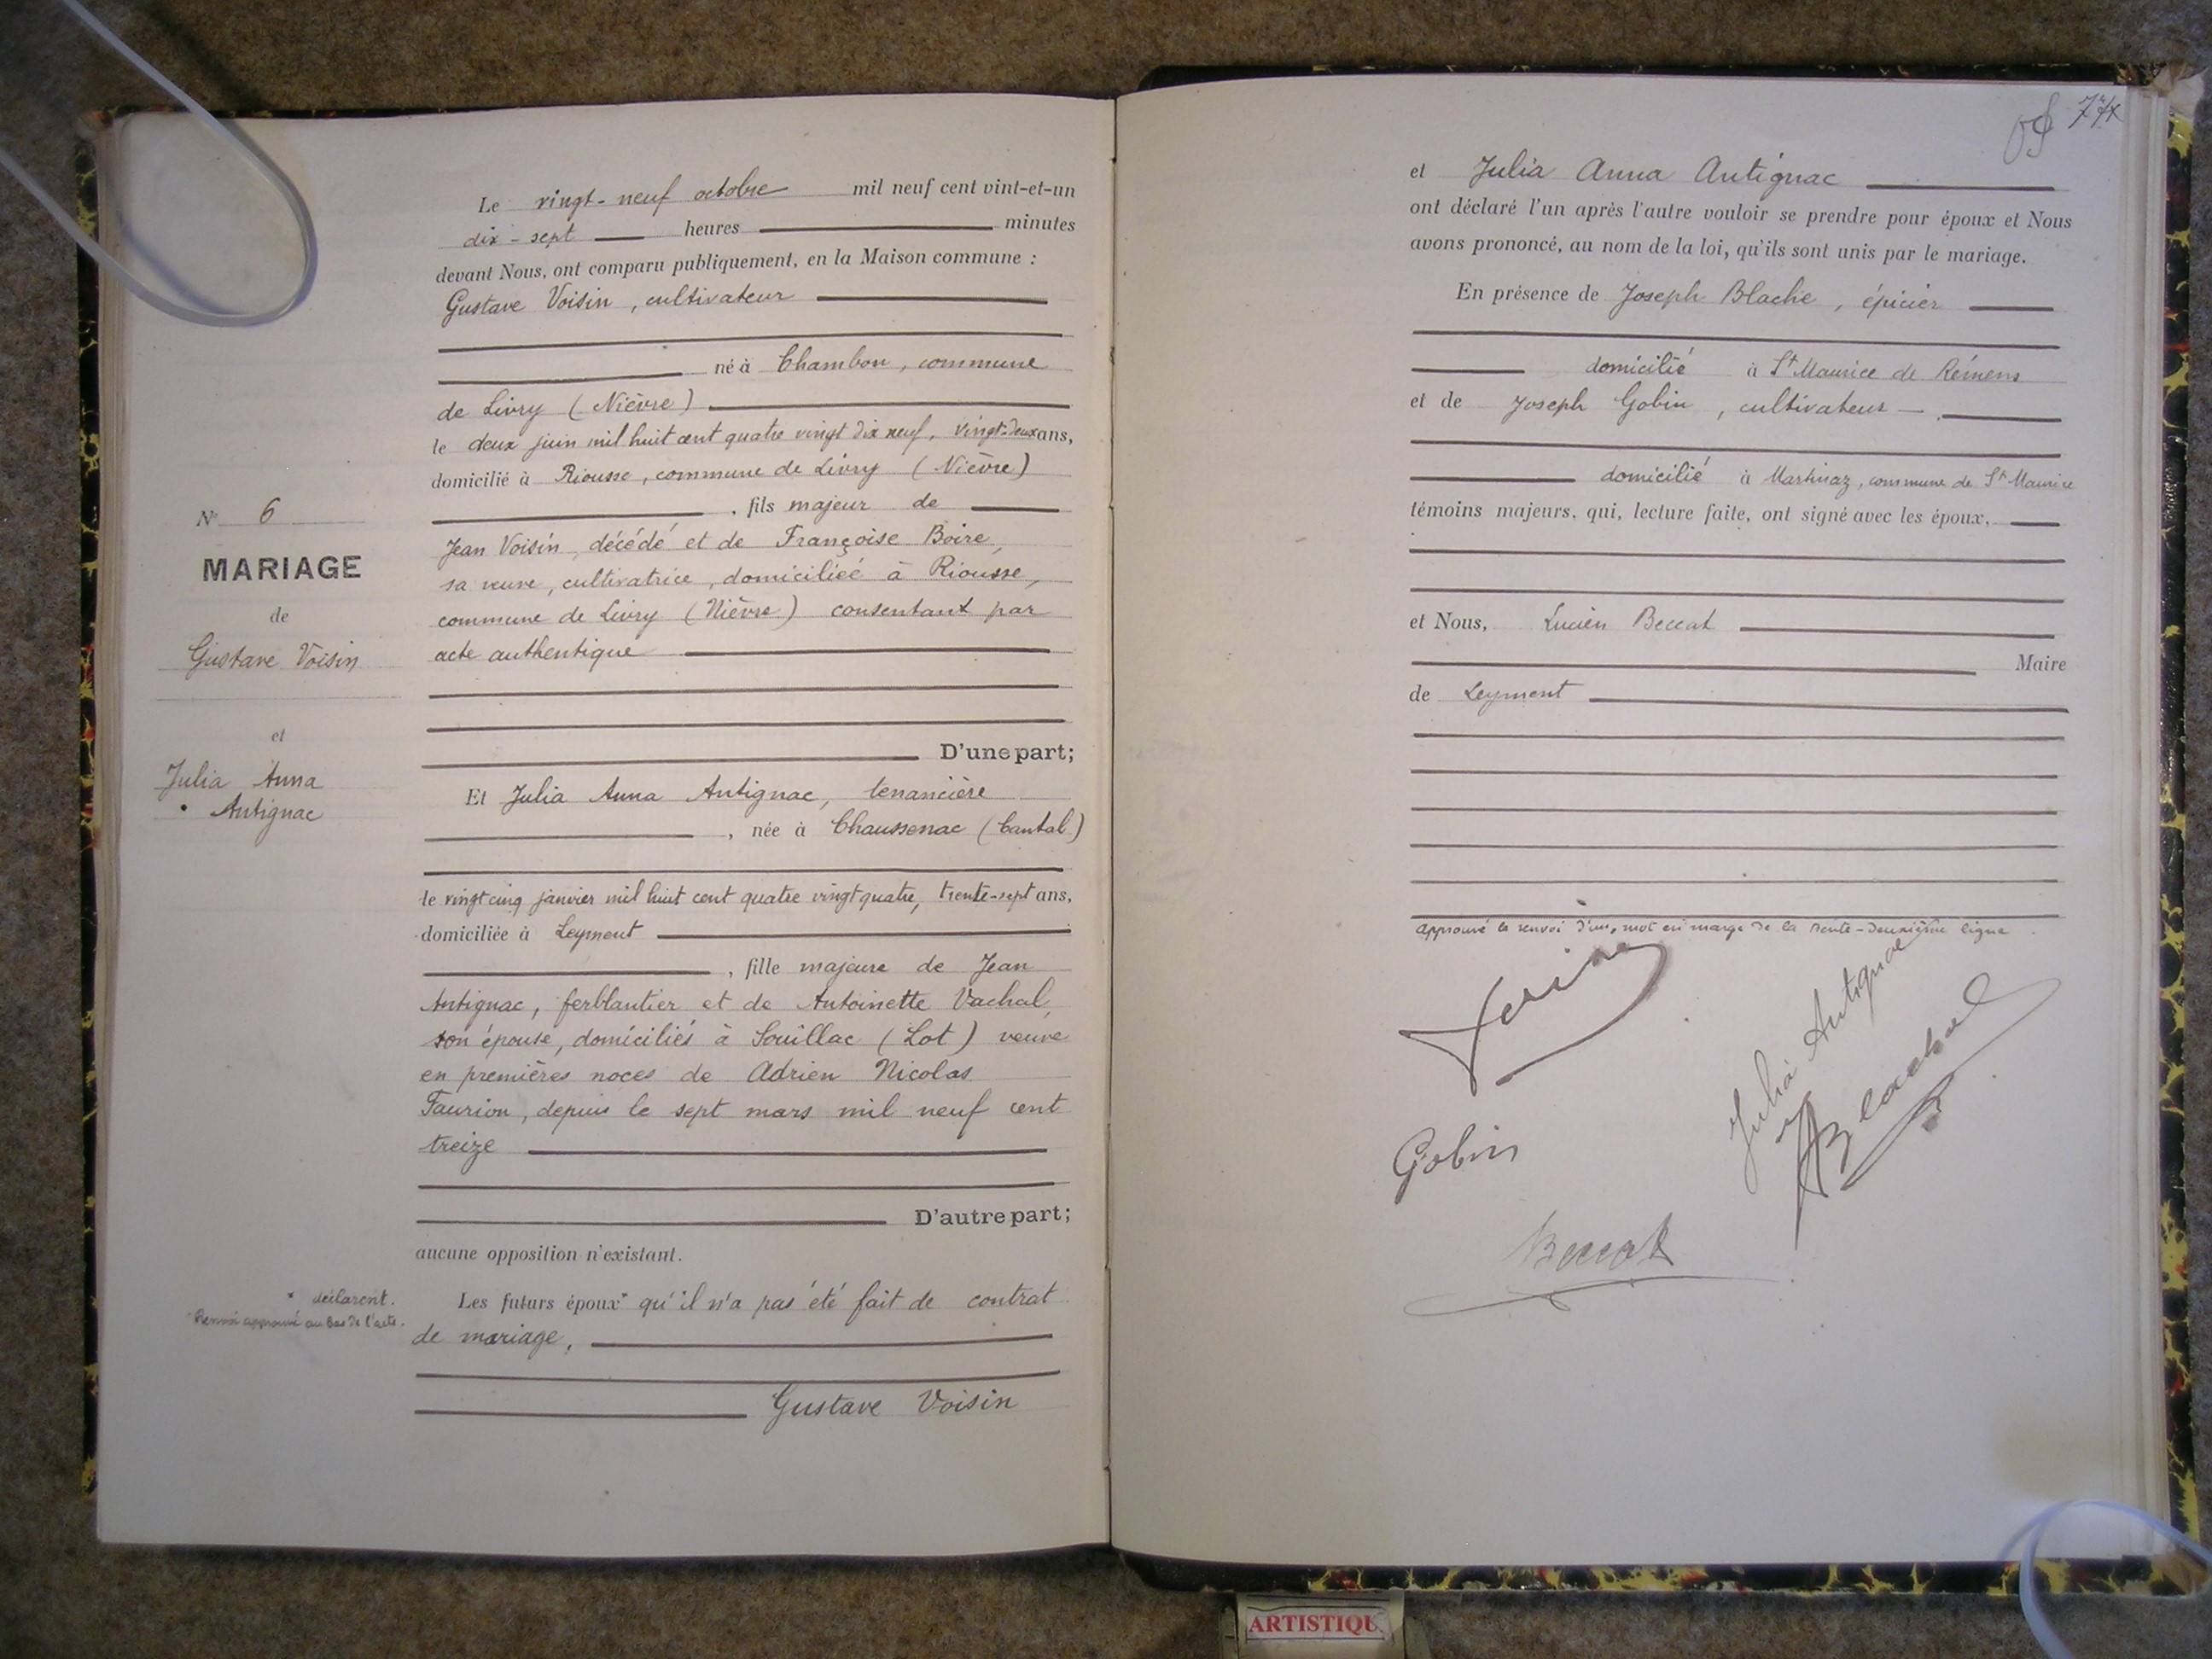 N° 6
MARIAGE
de
Gustave Voisin
et
Julia Anna
Antignac
Le vingt-neuf octobre mil neuf cent vint-et-un
dix-sept heures minutes
devant Nous, ont comparu publiquement, en la Maison commune :
Gustave Voisin, cultivateur
né à Chambon, commune
de Livry (Nièvre)
le deux juin mil huit cent quatre vingt dix neuf, vingt-deux ans,
domicilié à Riousse, commune de Livry (Nièvre)
, fils majeur de
Jean Voisin, décédé et de Françoise Boire,
sa veuve, cultivatrice, domiciliée à Riousse,
commune de Livry (Nièvre) consentant par
acte authentique
D'une part;
Et Julia Anna Antignac, tenancière
, née à Chaussenac (Cantal)
le vingt cinq janvier mil huit cent quatre vingt quatre, trente-sept ans,
domiciliée à Leyment
, fille majeure de Jean
Antignac, ferblantier et de Antoinette Vachal,
son épouse, domiciliés à Souillac (Lot) veuve
en premières noces de Adrien Nicolas
Faurion, depuis le sept mars mil neuf cent
treize
D'autre part;
aucune opposition n'existant.
* déclarent.
Renvoi approuvé au bas de l'acte.
Les futurs époux* qu'il n'a pas été fait de contrat
de mariage,
Gustave Voisin
74
et Julia Anna Antignac
ont déclaré l'un après l'autre vouloir se prendre pour époux et Nous
avons prononcé, au nom de la loi, qu'ils sont unis par le mariage.
En présence de Joseph Blache, épicier
domicilié à St Maurice de Rémens
et de Joseph Gobin, cultivateur
domicilié à Martinaz, commune de St Maurice
témoins majeurs, qui, lecture faite, ont signé avec les époux,
et Nous, Lucien Beccat
Maire
de Leyment
approuvé le renvoi d'un mot en marge de la trente-deuxième ligne
Voisin
Julia Antignac
Gobin
Blache
Beccat
ARTISTIQU